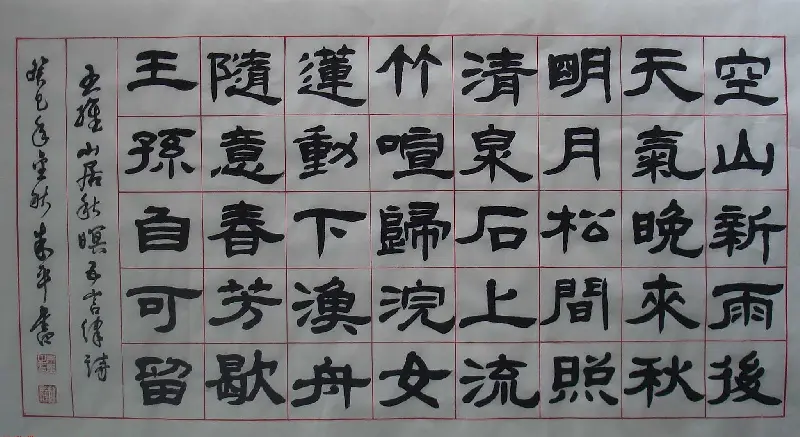 空山新雨後
天氣晚來秋
明月松間照
清泉石上流
竹喧歸浣女
蓮動下漁舟
隨意春芳歇
王孫自可留
王維山居秋暝五言律詩
癸巳年秋 平書